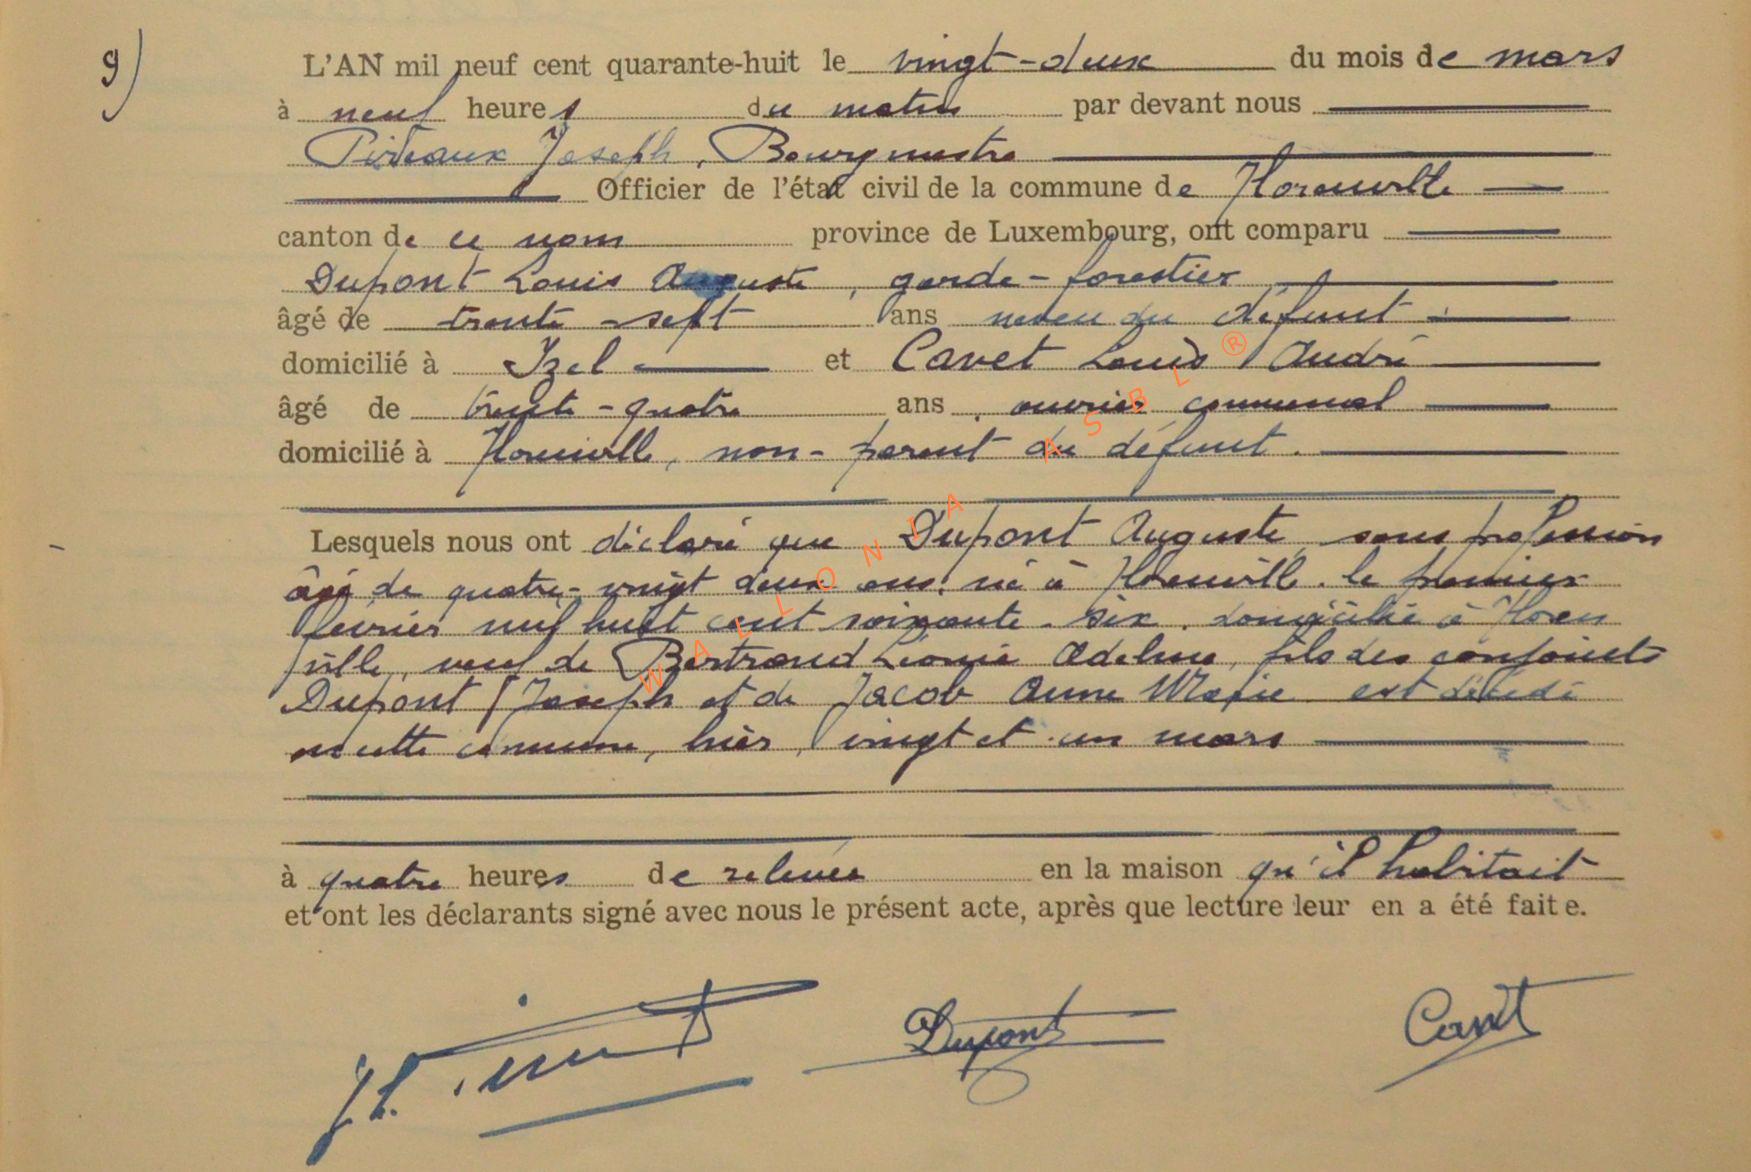 9)
L'AN mil neuf cent quarante-huit le vingt-deux du mois de mars
à neuf heures du matin par devant nous
Piveaux Joseph, Bourgmestre
Officier de l'état civil de la commune de Florenville
canton de ce nom province de Luxembourg, ont comparu
Dupont Louis Auguste, garde-forestier
âgé de trente-sept ans neveu du défunt
domicilié à Izel et Cavet Louis André
âgé de trente-quatre ans ouvrier communal
domicilié à Florenville, non-parent du défunt.
Lesquels nous ont déclaré que Dupont Auguste, sans profession
âgé de quatre-vingt deux ans, né à Florenville le premier
février mil huit cent soixante-six, domicilié à Floren
ville, veuf de Bertrand Léonie Adeline, fils des conjoints
Dupont Joseph et de Jacob Anne Marie est décédé
en cette commune, hier, vingt et un mars
à quatre heures de relevée en la maison qu'il habitait
et ont les déclarants signé avec nous le présent acte, après que lecture leur en a été faite.
Dupont Cavet
WALLONIA ASBL ®